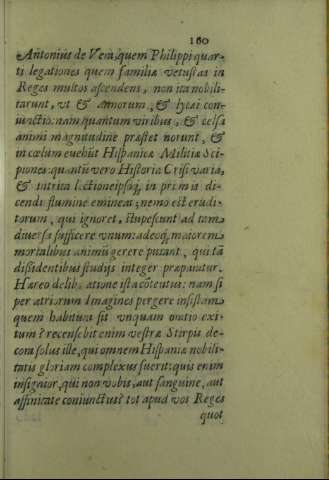 160
Antonius de Vera, quem Philippi quar-
ti legationes quem familiæ vetustas in
Reges multos ascendens, non ita nobili-
tarunt, vt & amorum, & lycæi con-
iunctio: nam quantum viribus, & celsa
animi magnitudine præstet norunt, &
in cœlum euehūt Hispanicæ Militiæ Sci-
piones: quantū vero Historiæ Crisi varia,
& intrita lectione ipsoq́; in primis di-
cendi flumine emineat; nemo est erudi-
torum, qui ignoret, stupescunt ad tam
diuersa sufficere vnum: adeoq́; maiorem
mortalibus animū gerere putant, qui tā
dissidentibus studijs integer præparatur.
Hæreo deliberatione ista cōtentus: nam si
per atriorum Imagines pergere insistam
quem habitura sit vnquam oratio exi-
tum? recensebit enim vestræ Stirpis de-
cora solus ille, qui omnem Hispaniæ nobili-
tatis gloriam complexus fuerit: quis enim
insignior, qui non vobis, aut sanguine, aut
affinitate coniunctus? tot apud vos Reges
quot